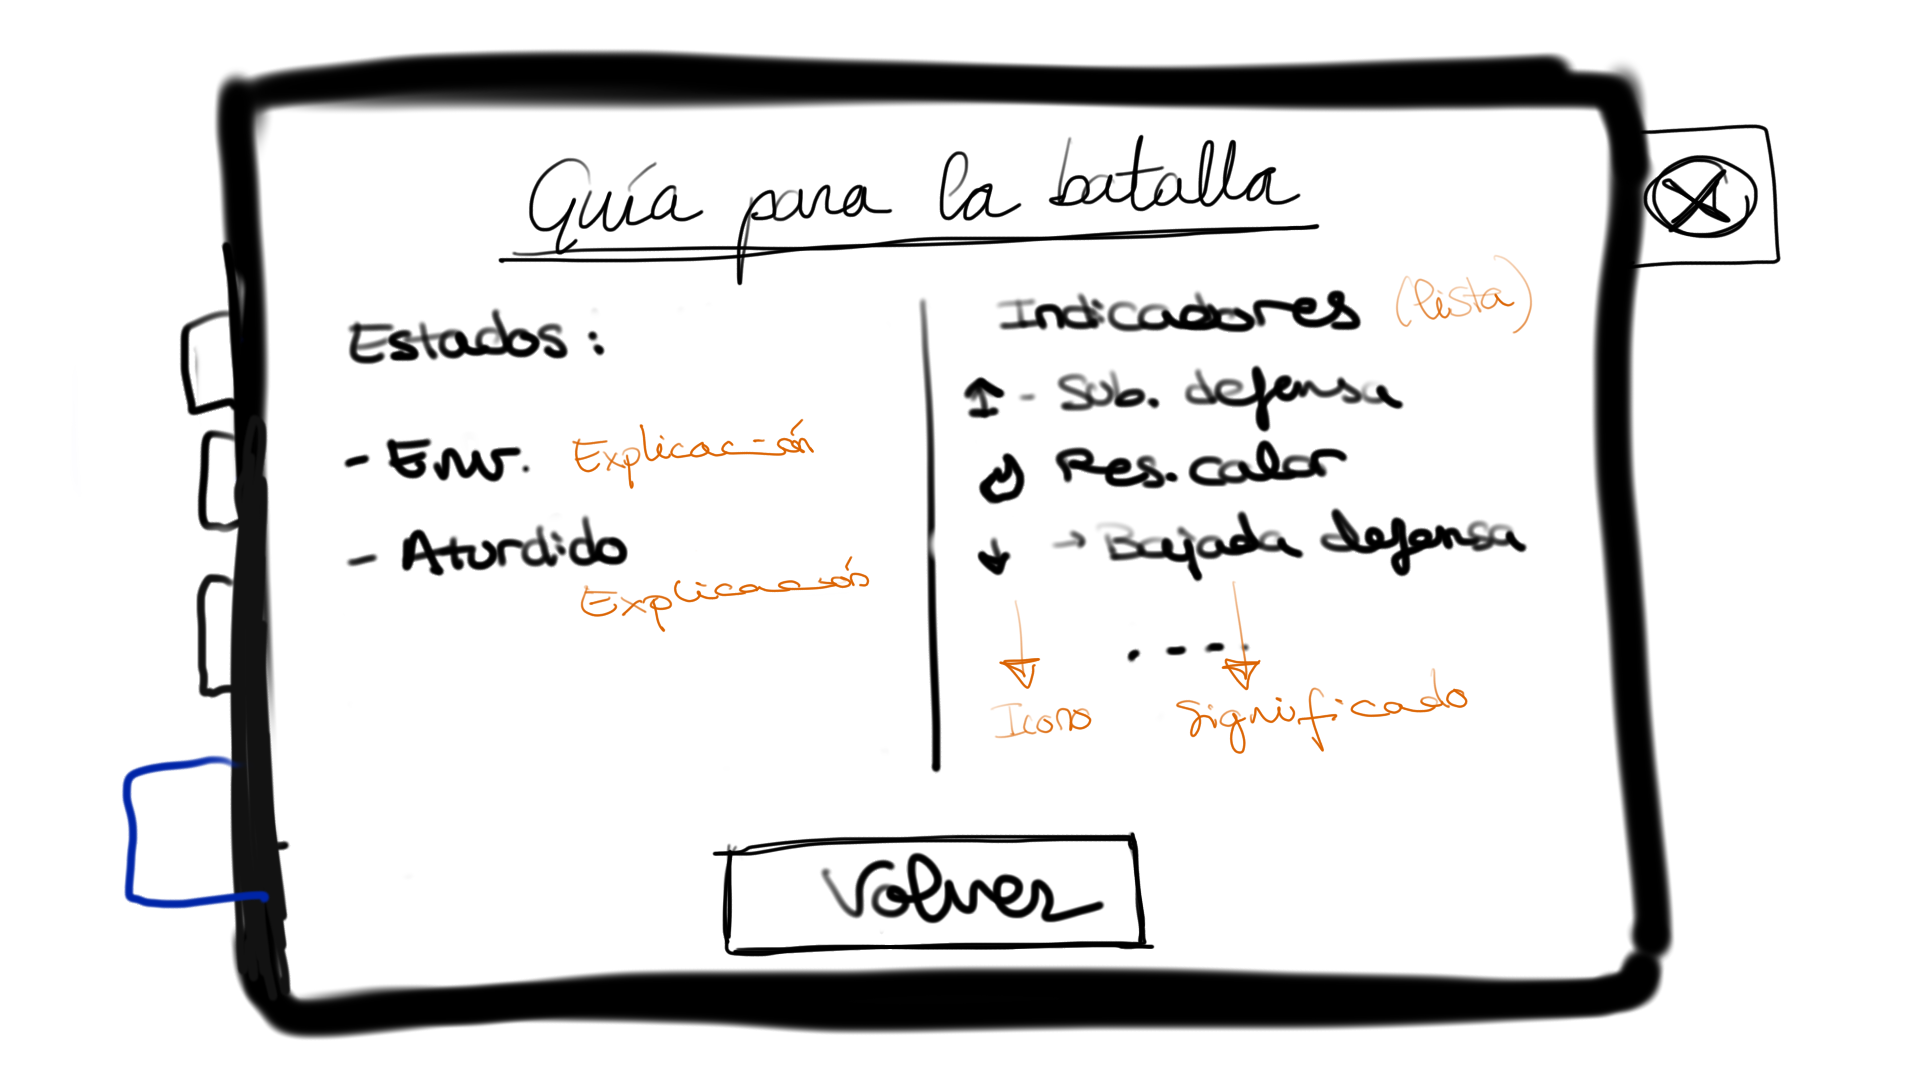 Guía para la batalla
Estados:
- Env. Explicación
- Aturdido
Explicación
Indicadores (lista)
↑ - Sub. defensa
Res. calor
↓ → Bajada defensa
....
Icono
Significado
Volver
X